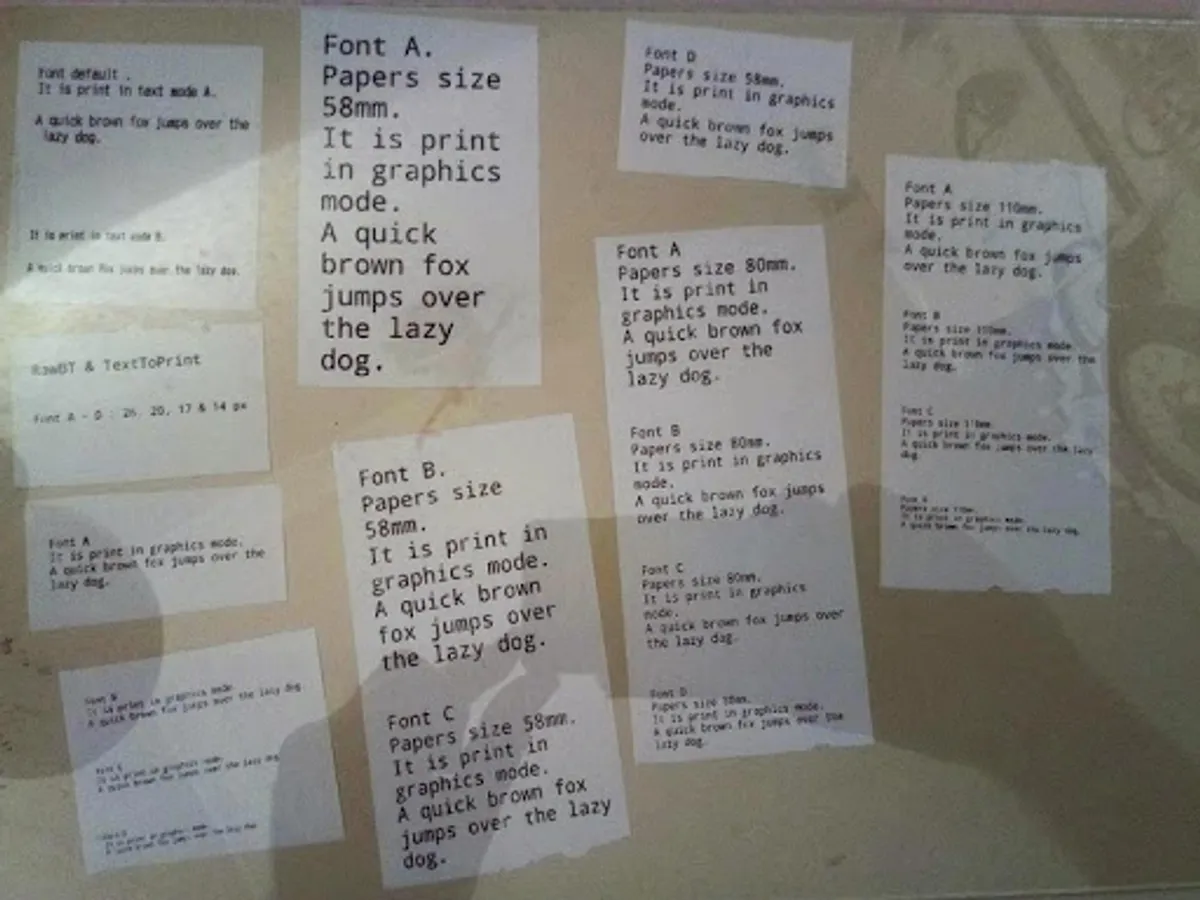 Font default .
It is print in text mode A.
A quick brown fox jumps over the
lazy dog.
It is print in text mode B.
A quick brown fox jumps over the lazy dog.
RawBT & TextToPrint
Font A - D : 26, 20, 17 & 14 px
Font A
It is print in graphics mode.
A quick brown fox jumps over the
lazy dog.
Font B
It is print in graphics mode.
A quick brown fox jumps over the lazy dog.
Font C
It is print in graphics mode.
A quick brown fox jumps over the lazy dog.
It is print in graphics mode.
A quick brown fox jumps over the lazy dog.
Font A.
Papers size
58mm.
It is print
in graphics
mode.
A quick
brown fox
jumps over
the lazy
dog.
Font B.
Papers size
58mm.
It is print in
graphics mode.
A quick brown
fox jumps over
the lazy dog.
Font C
Papers size 58mm.
It is print in
graphics mode.
A quick brown fox
jumps over the lazy
dog.
Font D
Papers size 58mm.
It is print in graphics
mode.
A quick brown fox jumps
over the lazy dog.
Font A
Papers size 80mm.
It is print in
graphics mode.
A quick brown fox
jumps over the
lazy dog.
Font B
Papers size 80mm.
It is print in graphics
mode.
A quick brown fox jumps
over the lazy dog.
Font C
Papers size 80mm.
It is print in graphics
mode.
A quick brown fox jumps over
the lazy dog.
Font D
Papers size
It is print in graphics mode.
A quick brown fox jumps over the
lazy dog.
Font A
Papers size 110mm.
It is print in graphics
mode.
A quick brown fox jumps
over the lazy dog.
Font B
Papers size 110mm.
It is print in graphics mode.
A quick brown fox jumps over the
lazy dog.
Font C
Papers size 110mm.
It is print in graphics mode.
A quick brown fox jumps over the lazy
dog.
Papers size 110mm.
It is print in graphics mode.
A quick brown fox jumps over the lazy dog.